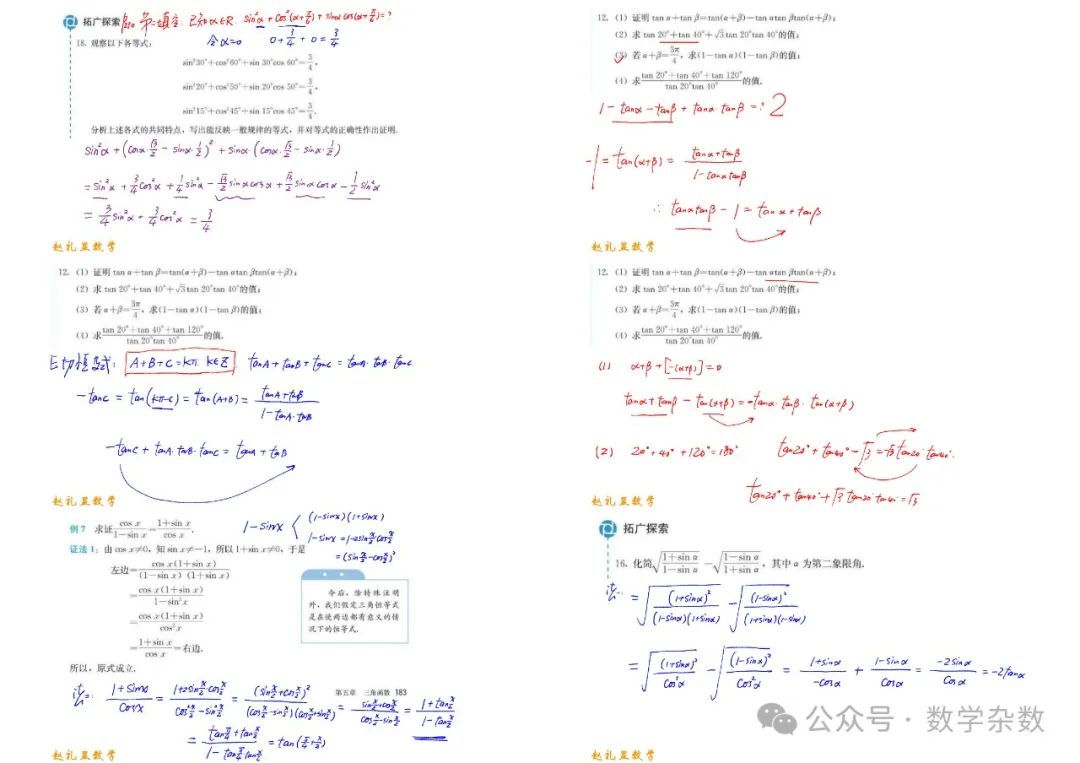 拓广探索 已知α∈R. sin²α+cos²(α+π/6)+sinα cos(α+π/6)=?
18. 观察以下各等式: 令α=0 0+3/4+0=3/4
sin²30°+cos²60°+sin 30°cos 60°=3/4,
sin²20°+cos²50°+sin 20°cos 50°=3/4,
sin²15°+cos²45°+sin 15°cos 45°=3/4.
分析上述各式的共同特点,写出能反映一般规律的等式,并对等式的正确性作出证明.
sin²α+(cosα·√3/2-sinα·1/2)²+sinα·(cosα·√3/2-sinα·1/2)
=sin²α+3/4cos²α+1/4sin²α-√3/2sinαcosα+√3/2sinαcosα-1/2sin²α
=3/4sin²α+3/4cos²α=3/4
赵礼显数学
12. (1) 证明 tan α+tan β=tan(α+β)-tan αtan βtan(α+β);
(2) 求 tan 20°+tan 40°+√3tan 20°tan 40°的值;
(3) 若 α+β=3π/4, 求(1-tan α)(1-tan β)的值;
(4) 求(tan 20°+tan 40°+tan 120°)/(tan 20°tan 40°)的值.
正切恒等式: A+B+C=kπ k∈Z tanA+tanB+tanC=tanA·tanB·tanC.
-tanC=tan(kπ-C)=tan(A+B)=(tanA+tanB)/(1-tanA·tanB)
-tanC+tanA·tanB·tanC=tanA+tanB
赵礼显数学
例7 求证 cos x/(1-sin x)=(1+sin x)/cos x.
1-sinx
(1-sinx)(1+sinx)
1-sinx=1-2sin x/2 cos x/2
=(sin x/2-cos x/2)²
证法1: 由 cos x≠0, 知 sin x≠-1, 所以 1+sin x≠0, 于是
左边=cos x(1+sin x)/((1-sin x)(1+sin x))
=cos x(1+sin x)/(1-sin²x)
=cos x(1+sin x)/cos²x
=(1+sin x)/cos x=右边.
所以,原式成立.
今后,除特殊注明
外,我们假定三角恒等式
是在使两边都有意义的情
况下的恒等式.
第五章 三角函数 183
(1+sinx)/cosx=(1+2sin x/2 cos x/2)/(cos² x/2-sin² x/2)=(sin x/2+cos x/2)²/((cos x/2-sin x/2)(cos x/2+sin x/2))=(sin x/2+cos x/2)/(cos x/2-sin x/2)=(1+tan x/2)/(1-tan x/2)
=(tan π/4+tan x/2)/(1-tan π/4 tan x/2)=tan(π/4+x/2)
赵礼显数学
12. (1) 证明 tan α+tan β=tan(α+β)-tan αtan βtan(α+β);
(2) 求 tan 20°+tan 40°+√3tan 20°tan 40°的值;
(3) 若 α+β=3π/4, 求(1-tan α)(1-tan β)的值;
(4) 求(tan 20°+tan 40°+tan 120°)/(tan 20°tan 40°)的值.
1-tanα-tanβ+tanα·tanβ=? 2
-1=tan(α+β)=(tanα+tanβ)/(1-tanαtanβ)
∴ tanαtanβ-1=tanα+tanβ
赵礼显数学
12. (1) 证明 tan α+tan β=tan(α+β)-tan αtan βtan(α+β);
(2) 求 tan 20°+tan 40°+√3tan 20°tan 40°的值;
(3) 若 α+β=3π/4, 求(1-tan α)(1-tan β)的值;
(4) 求(tan 20°+tan 40°+tan 120°)/(tan 20°tan 40°)的值.
(1) α+β+[-(α+β)]=0
tanα+tanβ-tan(α+β)=-tanα·tanβ·tan(α+β)
(2) 20°+40°+120°=180° tan20°+tan40°-√3=-√3tan20°·tan40°.
tan20°+tan40°+√3tan20°·tan40°=√3
赵礼显数学
拓广探索
16. 化简√((1+sin α)/(1-sin α))-√((1-sin α)/(1+sin α)), 其中α为第二象限角.
=√((1+sinα)²/((1-sinα)(1+sinα)))-√((1-sinα)²/((1+sinα)(1-sinα)))
=√((1+sinα)²/cos²α)-√((1-sinα)²/cos²α)=(1+sinα)/(-cosα)+(1-sinα)/cosα=-2sinα/cosα=-2tanα
公众号·数学杂数
赵礼显数学